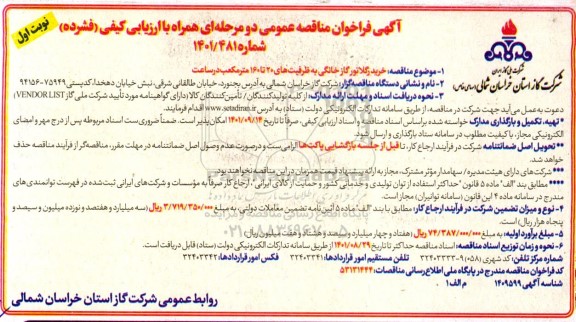 نوبت اول
آگهی فراخوان مناقصه عمومی دو مرحله‌ای همراه با ارزیابی کیفی (فشرده)
شماره ۱۴۰۱/۴۸۱
شرکت ملی گاز ایران
شرکت گاز استان خراسان شمالی (سهامی خاص)
۱- موضوع مناقصه: خرید رگلاتور گاز خانگی به ظرفیت‌های ۲۰ تا ۱۶۰ مترمکعب درساعت
۲- نام و نشانی دستگاه مناقصه‌گزار: شرکت گاز خراسان شمالی به آدرس بجنورد، خیابان طالقانی شرقی، نبش خیابان دهخدا، کدپستی ۷۵۹۴۹-۹۴۱۵۶
۳- نحوه دریافت اسناد و مهلت ارائه مدارک: از کلیه تولیدکنندگان / تأمین‌کنندگان کالا (دارای گواهینامه مورد تأیید شرکت ملی گاز VENDOR LIST)
دعوت به عمل می آید جهت شرکت در مناقصه، از طریق سامانه تدارکات الکترونیکی دولت (ستاد) به آدرس www.setadiran.ir اقدام فرمایند.
* تهیه، تکمیل و بارگذاری مدارک خواسته شده براساس اسناد مناقصه و اسناد ارزیابی کیفی، صرفاً تا تاریخ ۱۴۰۱/۰۹/۱۴ امکان پذیر است. ضمناً ضروری ست اسناد مربوطه پس از درج مهر و امضای
الکترونیکی مجاز، با کیفیت مطلوب در سامانه ستاد بارگذاری و ارسال شود.
** تحویل اصل ضمانتنامه شرکت در فرآیند ارجاع کار، تا قبل از جلسه بازگشایی پاکت‌ها الزامی ست و درصورت عدم وصول اصل ضمانتنامه در مهلت مقرر، مناقصه‌گر از فرآیند مناقصه حذف
خواهد شد.
*** شرکت‌های دارای هیئت مدیره / سهامدار مؤثر مشترک، مجاز به ارائه پیشنهاد قیمت همزمان در این مناقصه نخواهند بود.
**** مطابق بند "الف" ماده ۵ قانون "حداکثر استفاده از توان تولیدی و خدماتی کشور و حمایت از کالای ایرانی"، ارجاع کار صرفاً به مؤسسات و شرکت‌های ایرانی ثبت‌شده در فهرست توانمندی‌های
مندرج در ماده ۴ این قانون (سامانه توانیران) مجاز است.
۴- نوع و میزان تضمین شرکت در فرآیند ارجاع کار: مطابق با بند "الف" ماده ۵ آئین نامه تضمین معاملات دولتی به مبلغ ۳/۷۱۹/۳۵۰/۰۰۰ ریال (سه میلیارد و هفتصد و نوزده میلیون و سیصد و
پنجاه هزار ریال) است.
۵- مبلغ برآورد اولیه: به مبلغ ۷۴/۳۸۷/۰۰۰/۰۰۰ ریال (هفتاد و چهار میلیارد و سیصد و هشتاد و هفت میلیون ریال)
۶- نحوه و زمان توزیع اسناد مناقصه: اسناد مناقصه حداکثر تا تاریخ ۱۴۰۱/۰۸/۲۹ از طریق سامانه تدارکات الکترونیکی دولت (ستاد) قابل دریافت است.
شماره مرکز تلفن: کد شهری (۰۵۸) ۹-۳۲۴۰۳۳۳۰ تلفن مستقیم امور قراردادها: ۳۲۴۰۳۳۴۱ فکس امور قراردادها: ۳۲۴۰۳۳۴۲
کد فراخوان مناقصه مندرج در پایگاه ملی اطلاع رسانی مناقصات: ۵۳۱۳۱۴۴۴
شناسه آگهی ۱۴۰۹۵۹۹ م الف ۱
روابط عمومی شرکت گاز استان خراسان شمالی